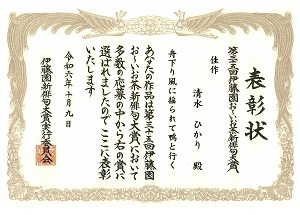 表彰状
第三十五回伊藤園お～いお茶新俳句大賞
佳作
清水 ひかり 殿
舟下り風に揺られて鴨と行く
あなたの作品は第三十五回伊藤園
お～いお茶新俳句大賞において
多数の応募の中から右の賞に
選ばれましたのでここに表彰
いたします
令和六年十月九日
伊藤園新俳句大賞実行委員会